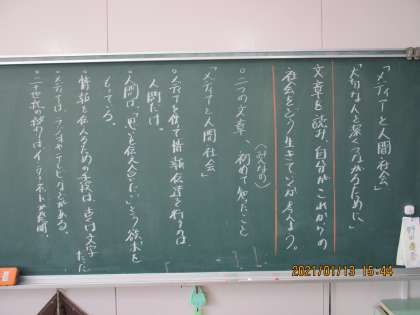 「メディアと人間社会」
「大切な人と深くつながるために」
文章を読み、自分がこれからの
社会をどう生きていくか考えよう。
〈みんなの〉
○二つの文章、初めて知ったこと
「メディアと人間社会」
○メディアを使って情報伝達を行うのは
人間だけ。
○人間は、「思いを伝え合いたい」という欲求を
もっている。
○情報を伝えるための手段は、
○メディアには、ラジオやテレビなどがある。
○二十世紀の終わりはインターネットが登場。
2021/01/13 15:44